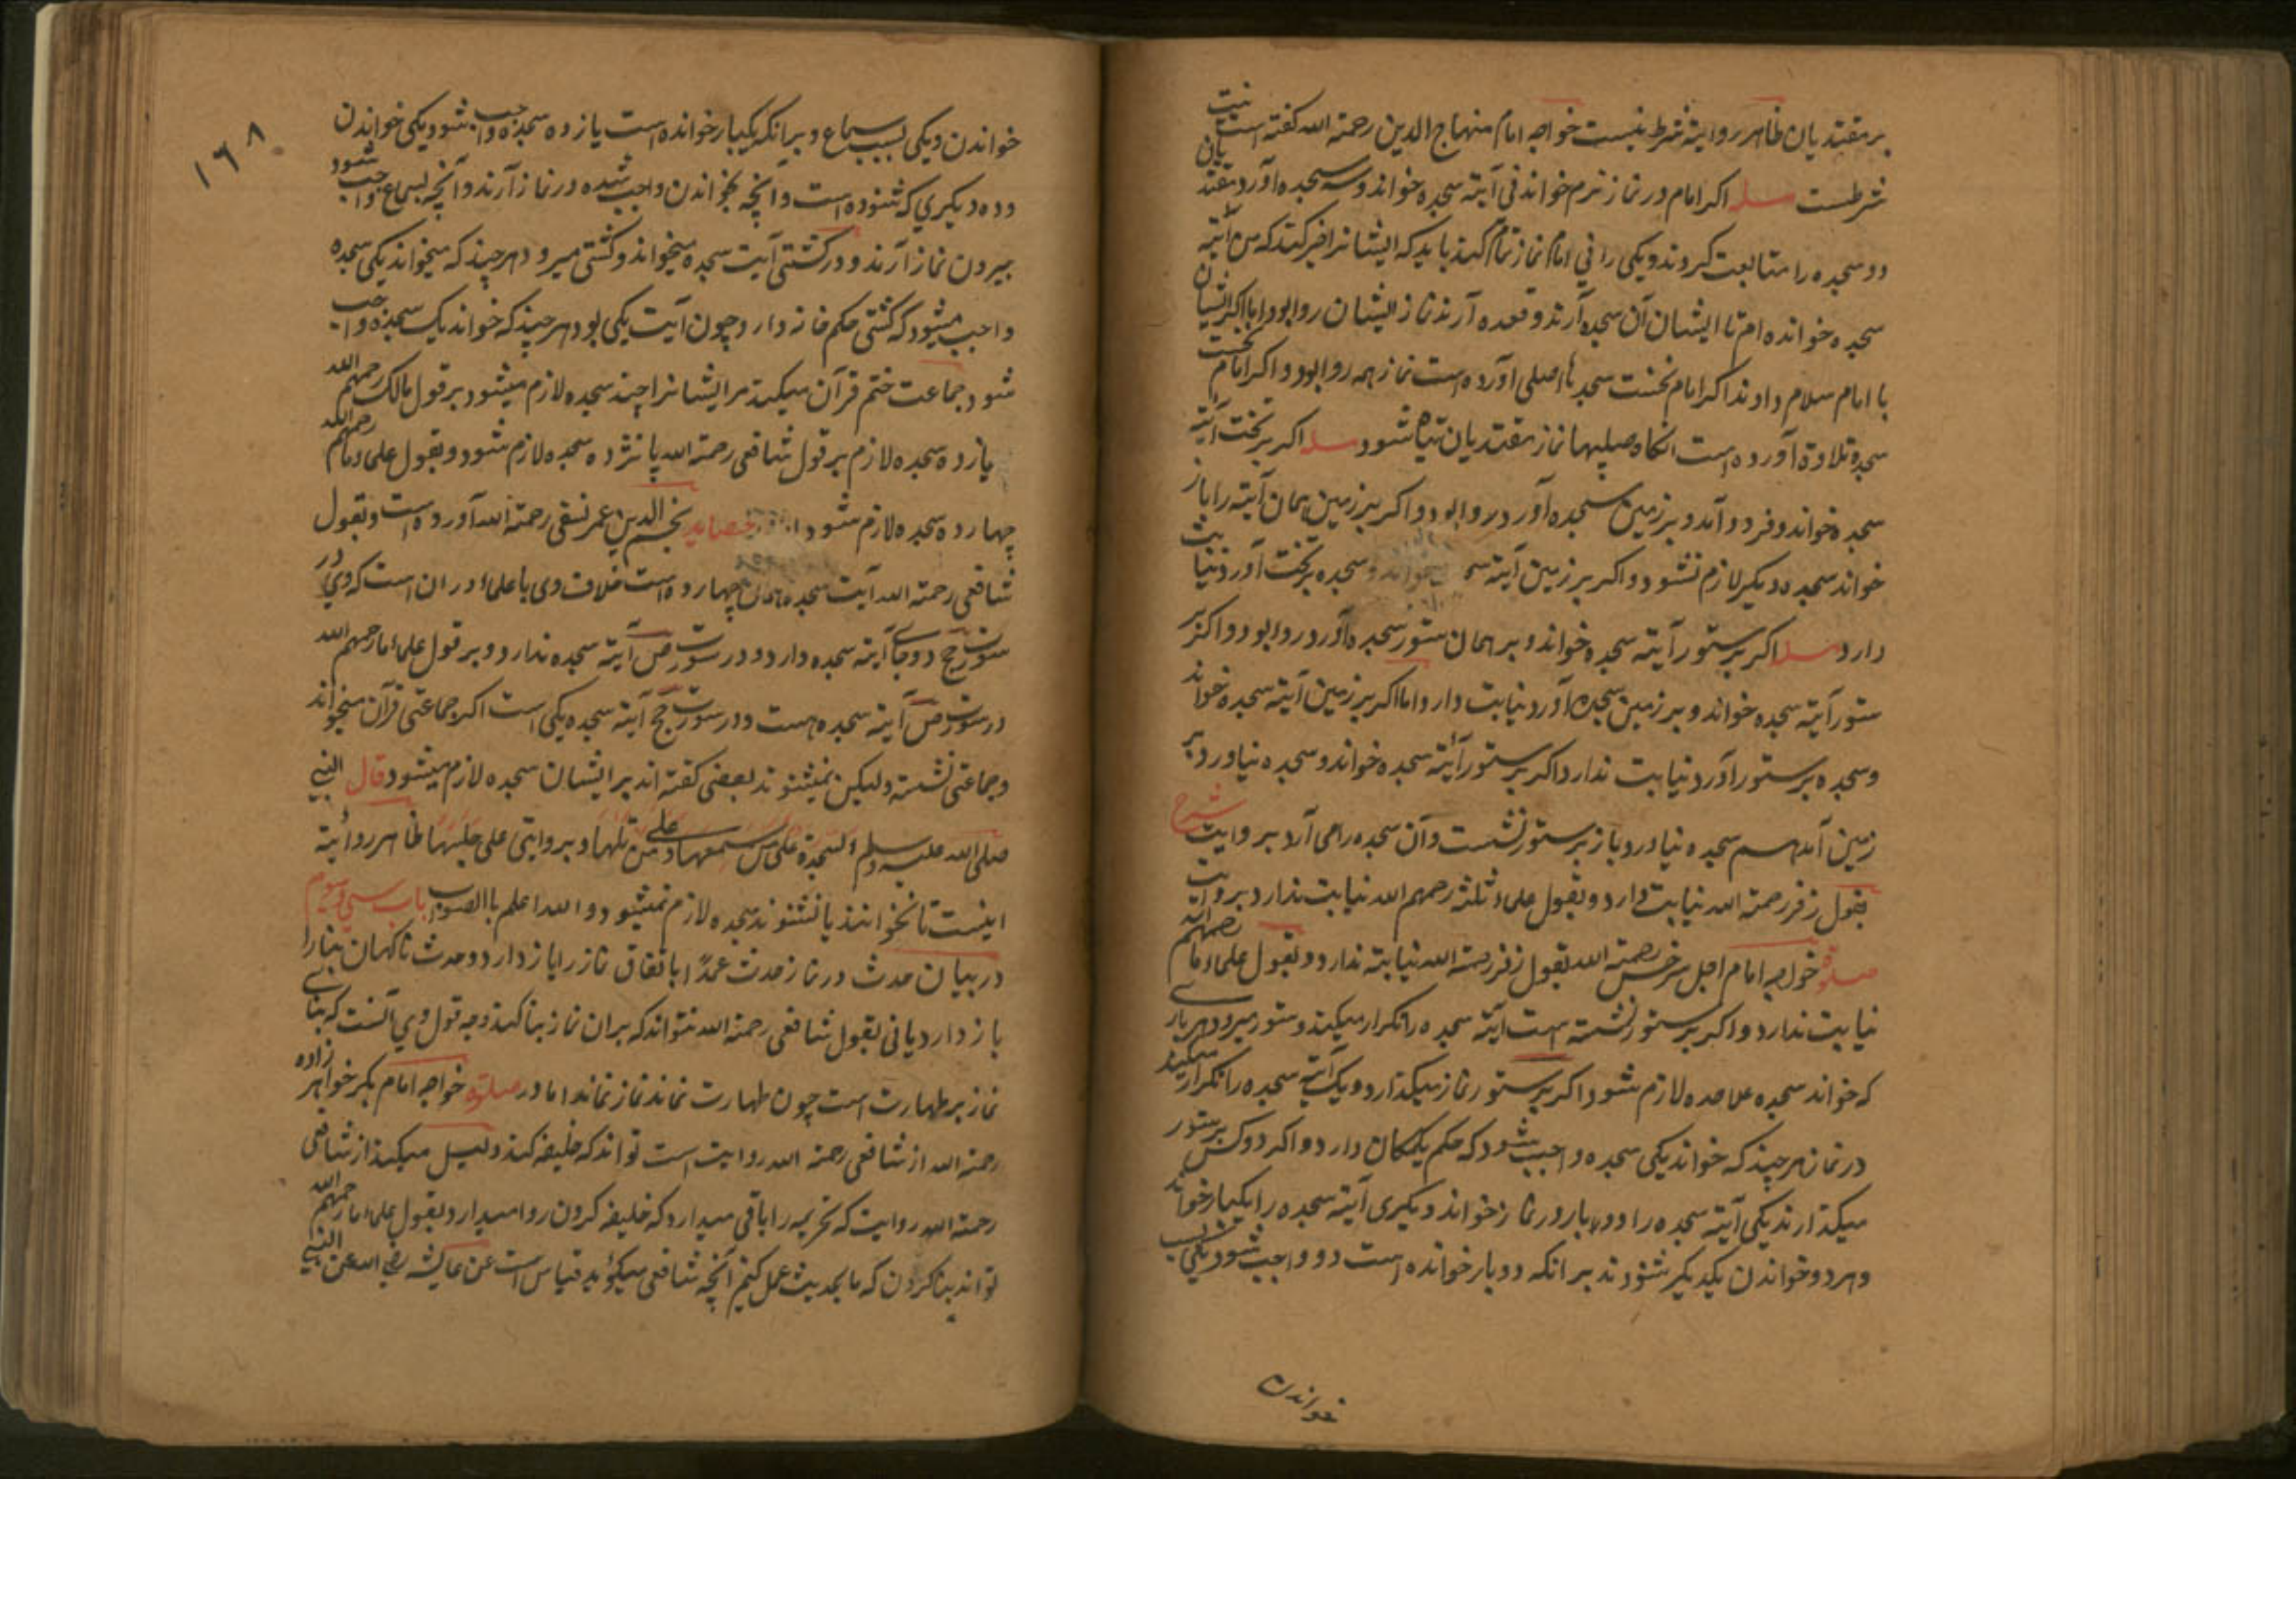 بر مقتدیان ظاهر روایة شرط نیست خواجه امام منهاج الدین رحمة الله کفته است نیت
شرطست مسله اکر امام در نماز نرم خواند فی آیته سجده خواند و سه سجده آورد مقتدیان
دو سجده را متابعت کردند و یکی را نی امام نماز تمام کند باید که ایشانرا خبر کند که من آیته
سجده خوانده ام تا ایشان آن سجده آرند و قعده آرند نماز ایشان روا بود اما اکر ایشان
با امام سلام دادند اکر امام نخست سجدها اصلی آورده است نماز همه روا بود و اکر امام نخست
سجده تلاوة آورده است انکاه صلبیها نماز مقتدیان تباه شود مسله اکر بر تخت آیته
سجده خواند و فرود آمد و بر زمین سجده آورد روا بود و اکر بر زمین همان آیته را باز
خواند سجده دیکر لازم نشود و اکر بر زمین آیته خواند و سجده بر تخت آورد نیابت
دارد مسله اکر بر ستور آیته سجده خواند و بر همان ستور سجده آورد روا بود و اکر بر
ستور آیته سجده خواند و بر زمین سجده آورد نیابت دارد اما اکر بر زمین آیته سجده خواند
و سجده بر ستور آورد نیابت ندارد اکر بر ستور آیته سجده خواند و سجده نیاورد بر
زمین آمد هم سجده نیاورد باز بر ستور نشست و آن سجده را می آرد بروایت شرح
بقول زفر رحمة الله نیابت دارد و بقول علماء ثلثه رحمهم الله نیابت ندارد بروایت
صلوة خواجه امام اجل سرخسی رحمة الله بقول زفر رحمة الله نیابته ندارد و بقول علماء ما رحمهم الله
نیابت ندارد و اکر بر ستور نشسته است آیته سجده را تکرار میکند و ستور میرود هر باری
که خواند سجده علاحده لازم شود اکر بر ستور نماز میکذارد و یک آیته سجده را تکرار میکند
در نماز هر چند که خواند یکی سجده واجب شود که حکم یک مکان دارد و اکر دو کس بر ستور
میکذارند یکی آیته سجده را دو بار در نماز خواند و دیکری آیته سجده را یکبار خواند
و هر دو خواندن یکدیکر شنودند بر انکه دو بار خوانده است دو واجب شود یکی بسبب
خواندن
۱۶۸
خواندن و یکی بسبب سماع و بر انکه یکبار خوانده است یازده سجده واجب شود یکی خواندن
و ده دیکری که شنوده است و آنچه بخواندن واجب شده در نماز آرند و آنچه بسماع واجب شود
بیرون نماز آرند و در کشتی آیت سجده میخواند و کشتی میرود هر چند که میخواند یکی سجده
واجب میشود که کشتی حکم خانه دارد چون آیت یکی بود هر چند که خواند یک سجده واجب
شود جماعت ختم قرآن میکنند مر ایشانرا چند سجده لازم میشود بر قول مالک رحمهم الله
یازده سجده لازم بر قول شافعی رحمة الله پانزده سجده لازم شود و بقول علماء ما رحمهم الله
چهارده سجده لازم شود نجم الدین عمر نسفی رحمة الله آورده است و بقول
شافعی رحمة الله آیت سجده همان چهارده است خلاف وی با علماء در ان است که وی در
سورت حج دو جای آیته سجده دارد و در سورت ص آیته سجده ندارد و بر قول علماء ما رحمهم الله
در سورت ص آیته سجده هست و در سورت حج آیته سجده یکی است اکر جماعتی قرآن میخواند
و جماعتی نشسته و لیکن نمیشنوند بعضی کفته اند بر ایشان سجده لازم میشود قال النبی
صلی الله علیه وسلم السجدة علی من سمعها و علی من تلاها و بروایتی علی جلیها ظاهر روایة
اینست تا نخوانند یا نشنوند سجده لازم نمیشود و الله اعلم با الصواب باب سی و سوم
در بیان حدث در نماز حدث عمدا باتفاق نماز را باز دارد و حدث ناکهان بنا را
باز دارد یا نی بقول شافعی رحمة الله نتواند که بران نماز بنا کند وجه قول وی آنست که بنای
نماز بر طهارت است چون طهارت نماند نماز نماند اما در صلوة خواجه امام بکر خواهر زاده
رحمة الله از شافعی رحمة الله روایت است تواند که خلیفه کند دلیل میکند از شافعی
رحمة الله روایت که تحریمه را باقی میدارد که خلیفه کردن روا میدارد و بقول علماء ما رحمهم الله
تواند بنا کردن که ما بحدیث عمل کنیم آنچه شافعی میکوید قیاس است عن عایشه رضی الله عن النبی